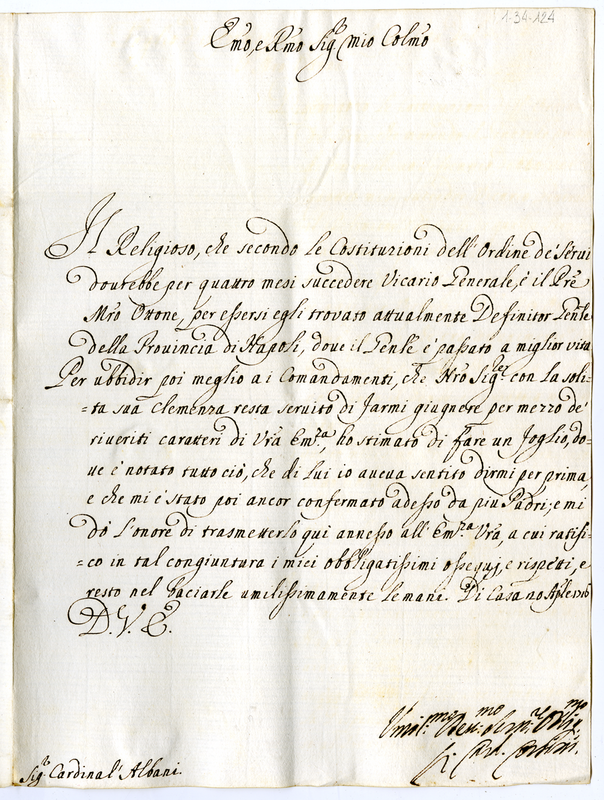 1-34-124
Emo, e Rmo Sigr mio Colmo
Il Religioso, che secondo le Costituzioni dell'Ordine de' Servi
dovrebbe per quattro mesi succedere Vicario Generale, è il Prē
Mrō Ottone, per essersi egli trovato attualmente Definitor Genlē
della Provincia di Napoli, dove il Genlē è passato a miglior vita
Per ubbidir poi meglio a i Comandamenti, che Nrō Sigre con la soli=
=ta sua clemenza resta servito di farmi giugnere per mezzo de'
riveriti caratteri di Vrā Emza, ho stimato di fare un foglio, do=
ve è notato tutto ciò, che di lui io aveva sentito dirmi per prima
e che mi è stato poi ancor confermato adesso da piu Padri; e mi
dò l'onore di trasmetterlo qui annesso all'Emza Vrā, a cui ratifi=
=co in tal congiuntura i miei obbligatissimi ossequj, e rispetti, e
resto nel baciarle umilissimamente le mani. Di Casa 20 Aple 1716
D. V. E.
Umilmo Devmo Servr Obligmo
Card.
Sigr Cardinal' Albani.